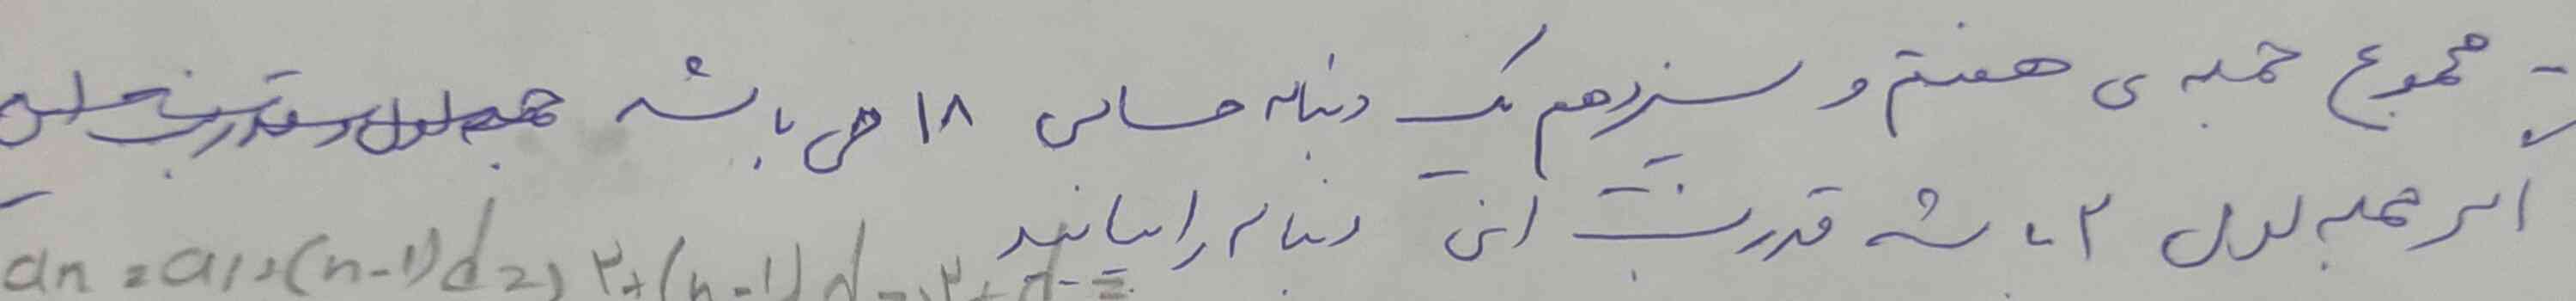 - مجموع جمله ی هفتم و سیزدهم یک دنباله حسابی ۱۸ می باشد
اگر جمله اول ۳ باشد قدرنسبت این دنباله را بیابید
an = a1 + (n-1)d => ۳+(n-1)d => ۳+d